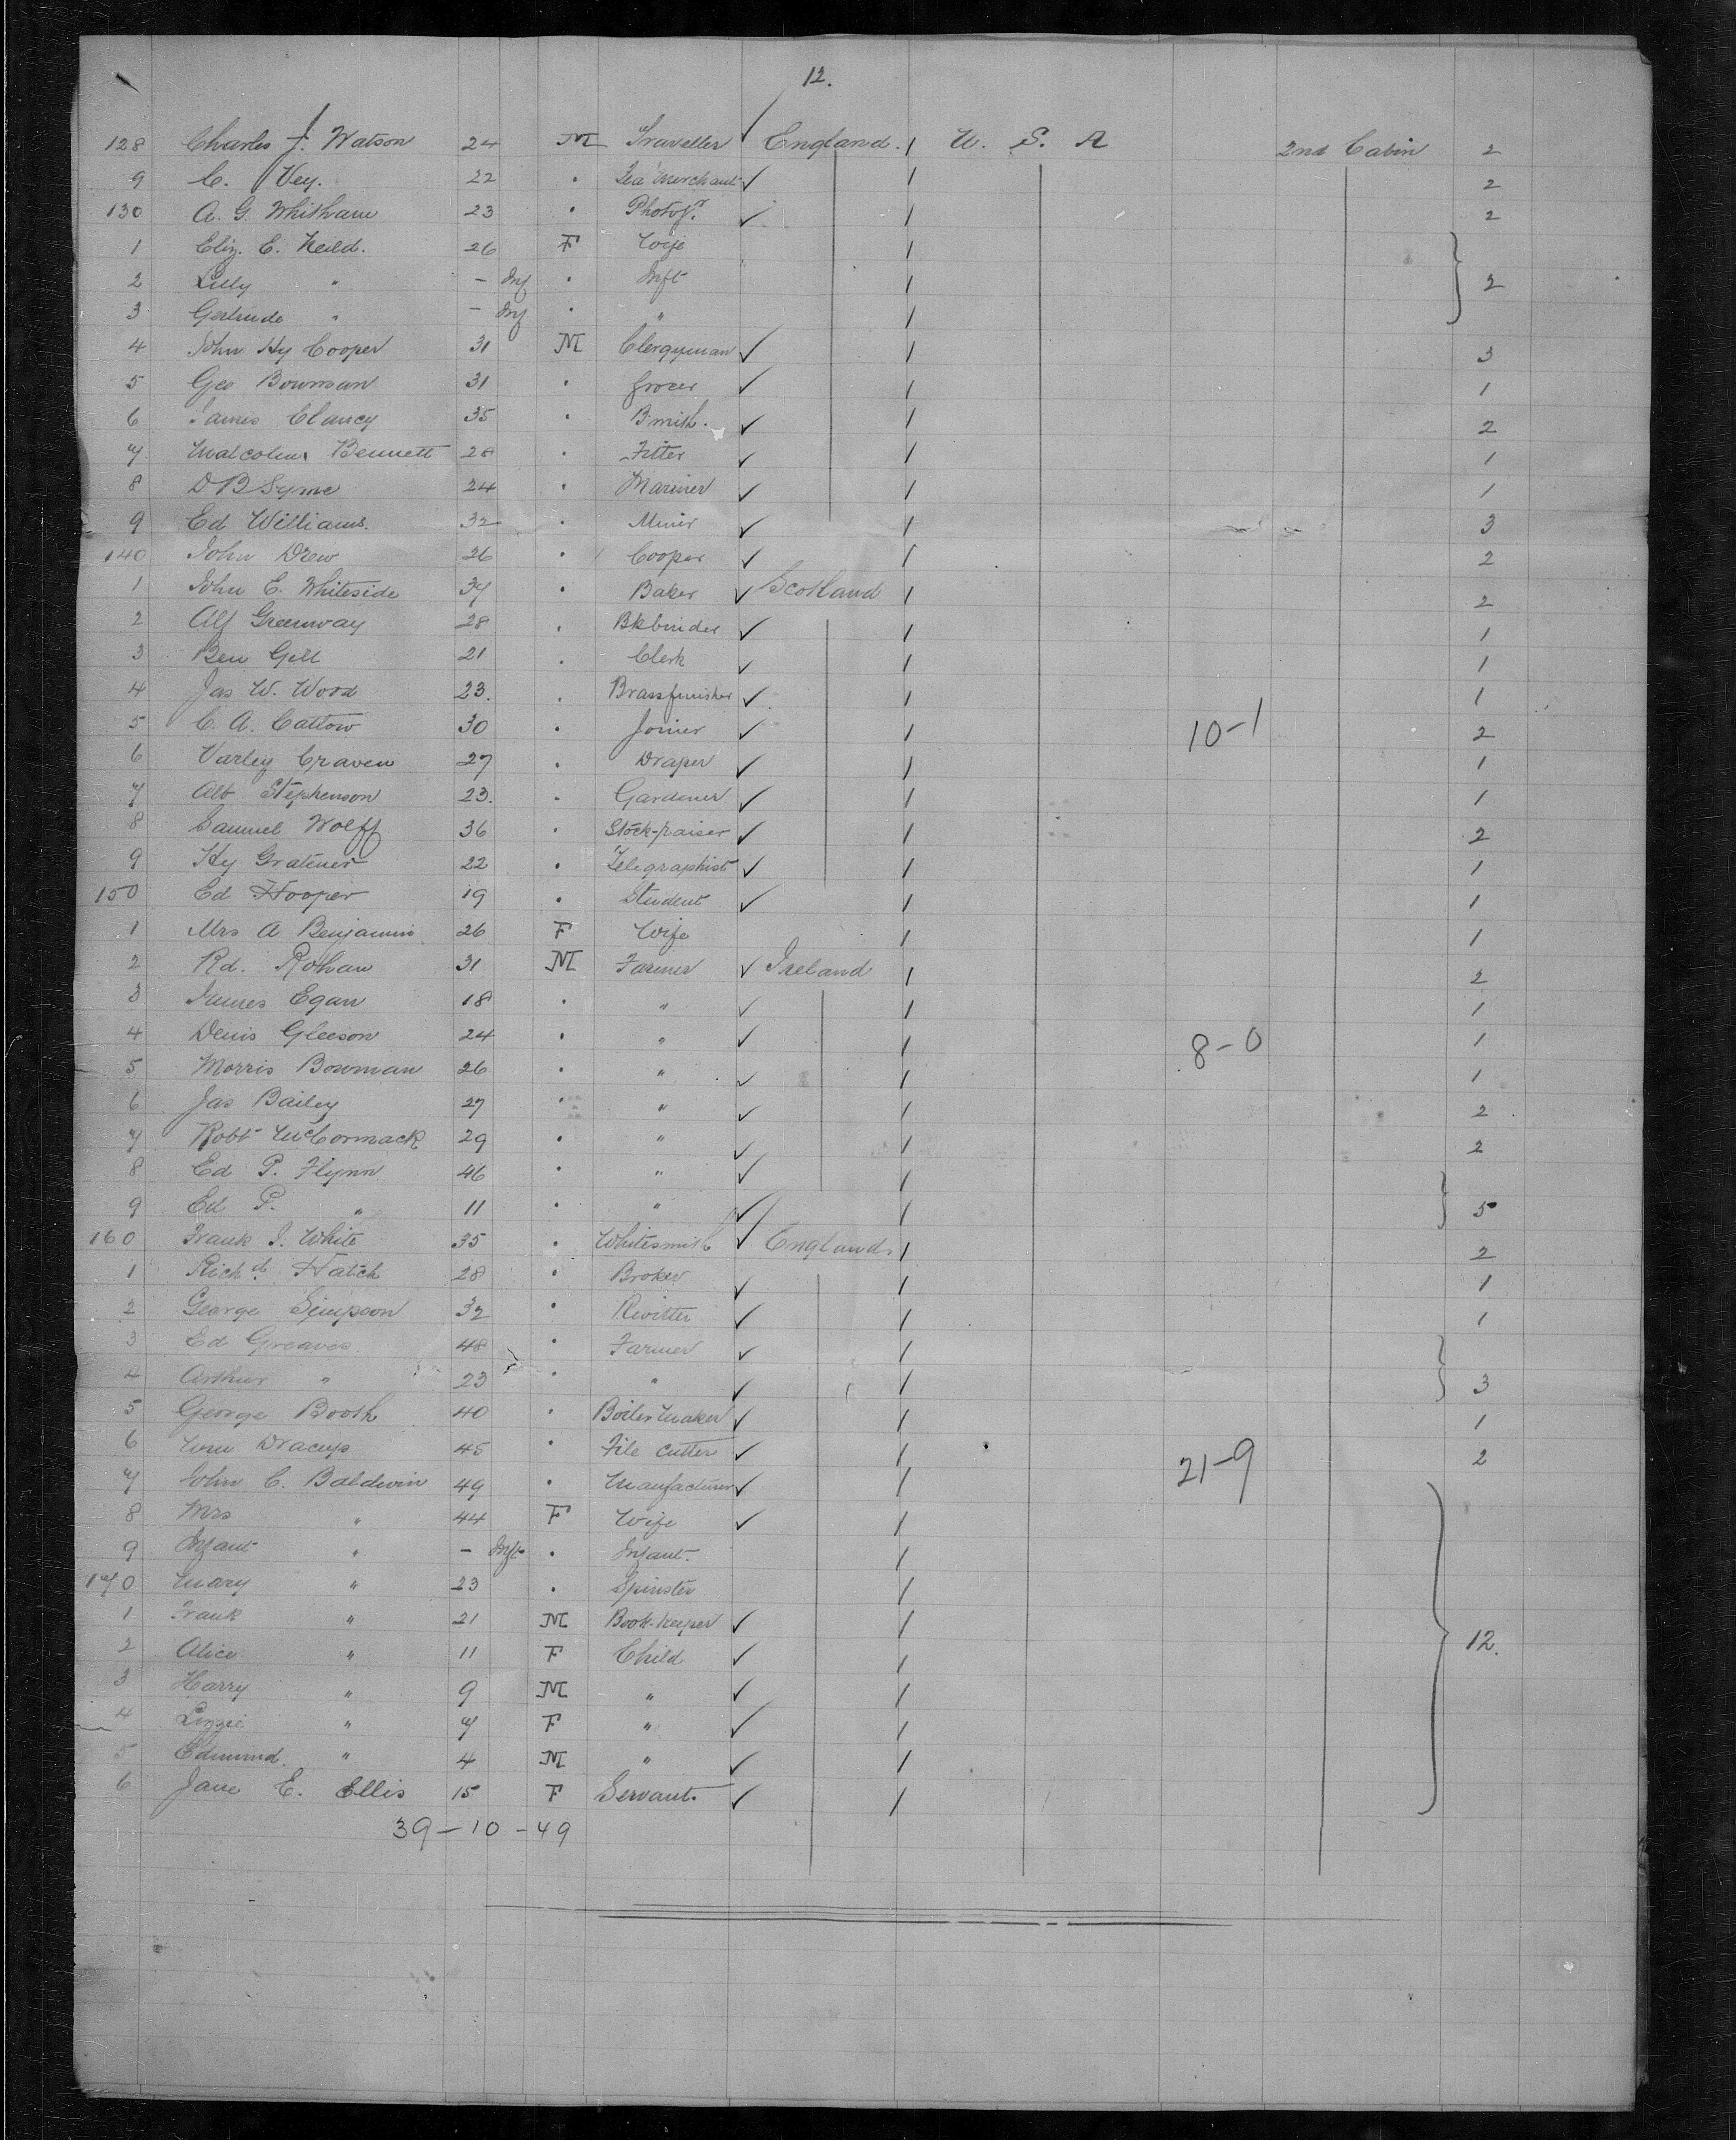 12.
128 Charles J. Watson 24 M Traveller England. U. S. A 2nd Cabin 2
9 C. Vey. 22 " Tea Merchant 2
130 A. G. Whitham 23 " Photogr. 2
1 Eliz. E. Neild. 26 F Wife
2 Lilly " - Inf " Inft 2
3 Gertrude " - Inf " "
4 John Hy Cooper 31 M Clergyman 3
5 Geo Bowman 31 " Grocer 1
6 James Clancy 35 " B.smith. 2
7 Malcolm Bennett 28 " Fitter 1
8 D B Syme 24 " Mariner 1
9 Ed Williams. 32 " Miner 3
140 John Drew 26 " Cooper 2
1 John E. Whiteside 34 " Baker Scotland 2
2 Alf Greenway 28 " Bkbinder 1
3 Ben Gill 21 " Clerk 1
4 Jas W. Wood 23. " Brassfinisher 1
5 C. A. Cattow 30 " Joiner 10-1 2
6 Varley Craven 27 " Draper 1
7 Alb Stephenson 23. " Gardener 1
8 Samuel Wolff 36 " Stock-raiser 2
9 Hy Gratiner 22 " Telegraphist 1
150 Ed Hooper 19 " Student 1
1 Mrs A Benjamin 26 F Wife 1
2 Rd. Rohan 31 M Farmer Ireland 2
3 James Egan 18 " " 1
4 Denis Gleeson 24 " " 8-0 1
5 Morris Bowman 26 " " 1
6 Jas Bailey 27 " " 2
7 Robt McCormack 29 " " 2
8 Ed P. Flynn 46 " "
9 Ed P. " 11 " " 5
160 Frank J. White 35 " Whitesmith England. 2
1 Richd. Hatch 28 " Broker 1
2 George Simpson 32 " Rivitter 1
3 Ed Greaves 48 " Farmer
4 Arthur " 23 " " 3
5 George Booth 40 " Boiler Maker 1
6 Wm Dracup 45 " File cutter 21-9 2
7 John C. Baldwin 49 " Manfacturer
8 Mrs " 44 F Wife
9 Infant " - Inft " Infant.
170 Mary " 23 " Spinster
1 Frank " 21 M Book-keeper
2 Alice " 11 F Child 12.
3 Harry " 9 M "
4 Lizzie " 7 F "
5 Edmund " 4 M "
6 Jane E. Ellis 15 F Servant.
39-10-49